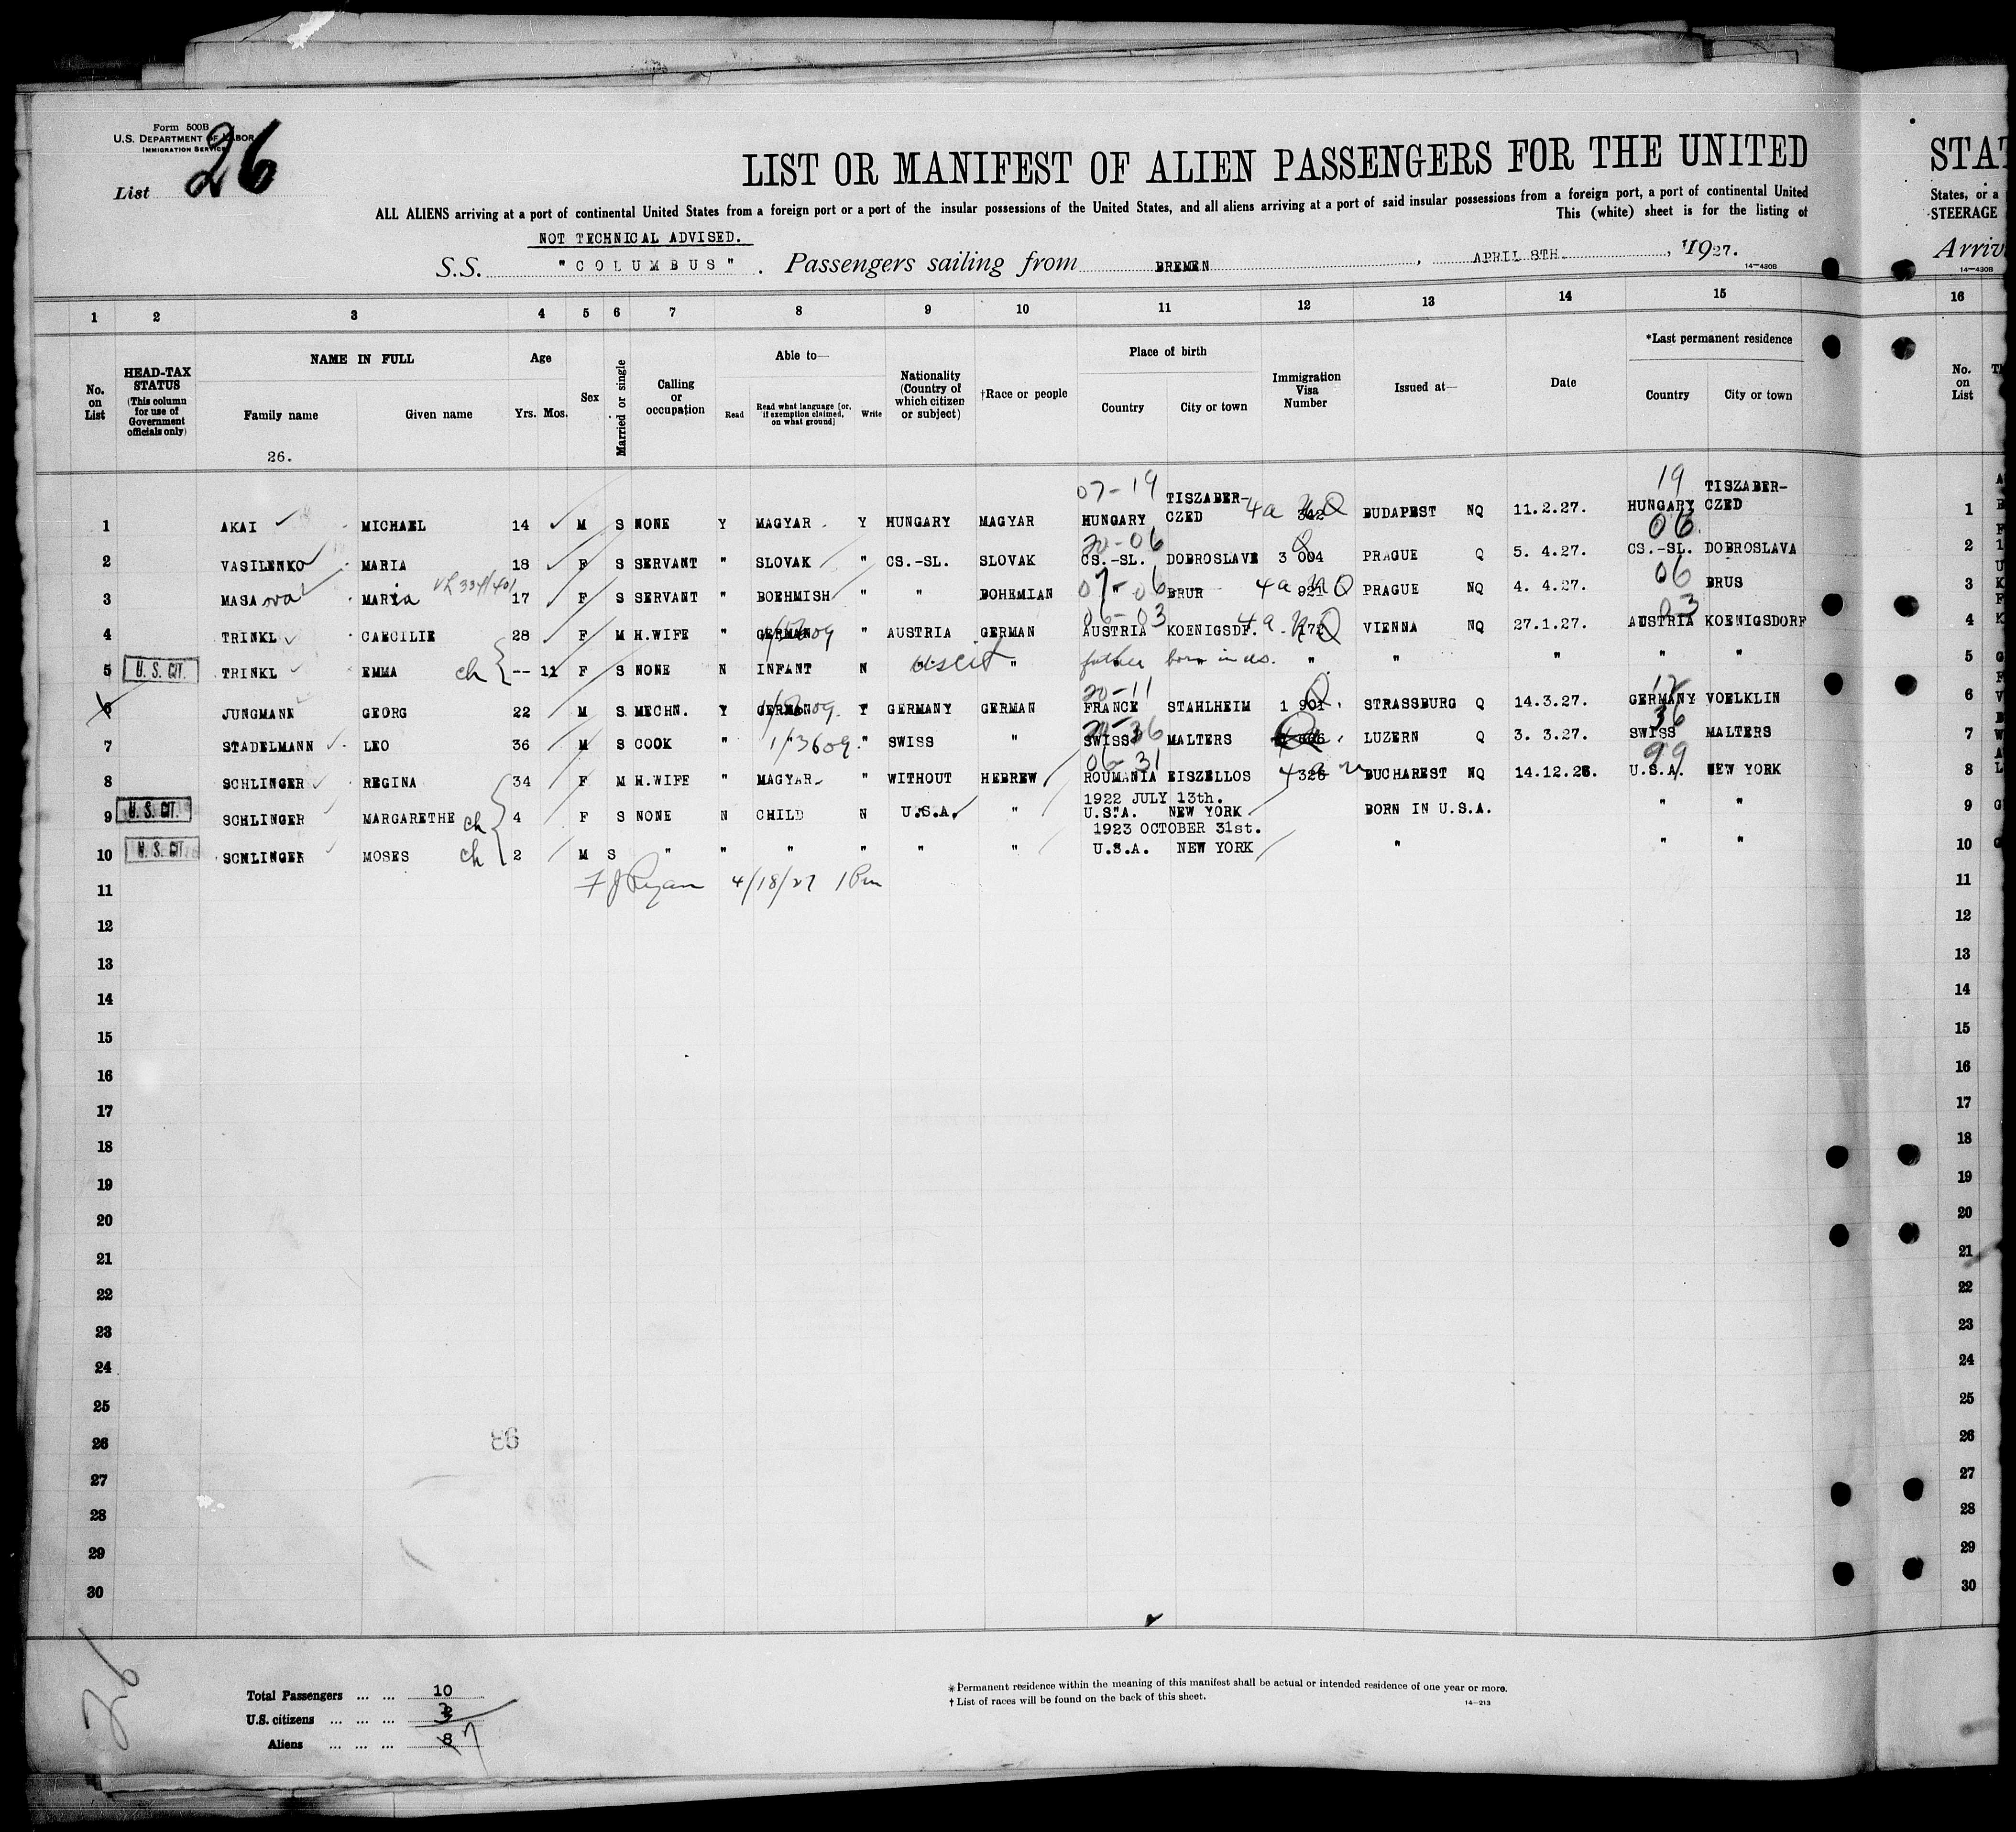 Form 500B
U.S. DEPARTMENT OF LABOR
IMMIGRATION SERVICE
List 26
LIST OR MANIFEST OF ALIEN PASSENGERS FOR THE UNITED
STAT
ALL ALIENS arriving at a port of continental United States from a foreign port or a port of the insular possessions of the United States, and all aliens arriving at a port of said insular possessions from a foreign port, a port of continental United
States, or a
This (white) sheet is for the listing of
STEERAGE
NOT TECHNICAL ADVISED.
S.S. "COLUMBUS". Passengers sailing from BREMEN, APRIL 8TH., 1927.
Arriv
14-430B
14-430B
1 2 3 4 5 6 7 8 9 10 11 12 13 14 15 16
No. on List
HEAD-TAX STATUS (This column for use of Government officials only)
NAME IN FULL
Family name Given name
26.
Age
Yrs. Mos.
Sex
Married or single
Calling or occupation
Able to—
Read
Read what language [or, if exemption claimed, on what ground]
Write
Nationality (Country of which citizen or subject)
†Race or people
Place of birth
Country City or town
Immigration Visa Number
Issued at—
Date
*Last permanent residence
Country City or town
No. on List
07-19 TISZABER- 19 TISZABER-
1 AKAI MICHAEL 14 M S NONE Y MAGYAR Y HUNGARY MAGYAR HUNGARY CZED 4a 342 NQ BUDAPEST NQ 11.2.27. HUNGARY CZED 1
20-06 06
2 VASILENKO MARIA 18 F S SERVANT " SLOVAK " CS.-SL. SLOVAK CS.-SL. DOBROSLAVE 3 004 PRAGUE Q 5. 4.27. CS.-SL. DOBROSLAVA 2
VL 334/401
07-06 06
3 MASA ova MARia 17 F S SERVANT " BOEHMISH " " BOHEMIAN " BRUR 4a 921 NQ PRAGUE NQ 4. 4.27. BRUS 3
06-03 03
4 TRINKL CAECILIE 28 F M H.WIFE " GERMAN " AUSTRIA GERMAN AUSTRIA KOENIGSDF. 4a 172 NQ VIENNA NQ 27.1.27. AUSTRIA KOENIGSDORF 4
5 U.S. CIT. TRINKL EMMA ch -- 11 F S NONE N INFANT N US cit " father born in US. " " " " " 5
20-11 12
6 JUNGMANN GEORG 22 M S MECHN. Y GERMAN Y GERMANY GERMAN FRANCE STAHLHEIM 1 901 Q STRASSBURG Q 14.3.27. GERMANY VOELKLIN 6
36
7 STADELMANN LEO 36 M S COOK " " " SWISS " SWISS MALTERS LUZERN Q 3. 3.27. SWISS MALTERS 7
06-31 99
8 SCHLINGER REGINA 34 F M H.WIFE " MAGYAR " WITHOUT HEBREW ROUMANIA EISZELLOS 4 326 BUCHAREST NQ 14.12.26. U.S.A. NEW YORK 8
1922 JULY 13th.
9 U.S. CIT. SCHLINGER MARGARETHE ch 4 F S NONE N CHILD N U.S.A. " U.S.A. NEW YORK BORN IN U.S.A. " " 9
1923 OCTOBER 31st.
10 U.S. CIT. SCHLINGER MOSES ch 2 M S " " " " " " U.S.A. NEW YORK " " " 10
11 F J Ryan 4/18/27 1 Pm 11
12 12
13 13
14 14
15 15
16 16
17 17
18 18
19 19
20 20
21 21
22 22
23 23
24 24
25 25
26 26
27 27
28 28
29 29
30 30
26
Total Passengers ... ... 10
U.S. citizens ... ... ... 3
Aliens ... ... ... 8 7
*Permanent residence within the meaning of this manifest shall be actual or intended residence of one year or more.
† List of races will be found on the back of this sheet.
14-213